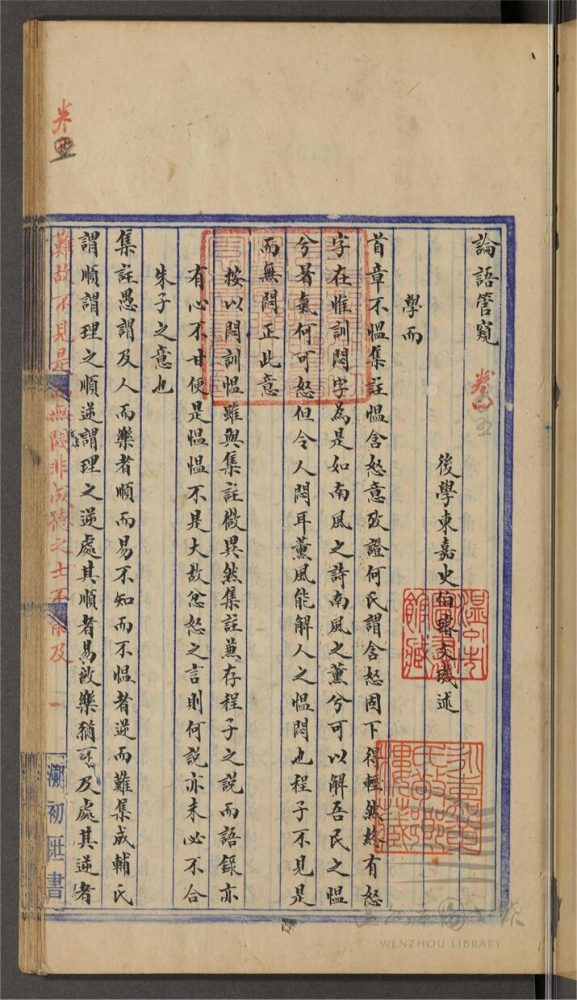 論語管窺 卷
後學東嘉史伯璿文璣述
學而
首章不愠集註愠含怒意攷證何氏謂含怒固下得輕然終有怒
字在惟訓悶字為是如南風之詩南風之薰兮可以解吾民之愠
兮暑氣何可怒但令人悶耳薰風能解人之愠悶也程子不見是
而無悶正此意
按以悶訓愠雖與集註微異然集註兼存程子之說而語錄亦
有心不甘便是愠愠不是大故忿怒之言則何說亦未必不合
朱子之意也
集註愚謂及人而樂者順而易不知而不愠者逆而難集成輔氏
謂順謂理之順逆謂理之逆處其順者易故樂猶可及處其逆者
難故不見是而無悶非成德之士不能及 一
溯初匧書
溫州市圖書館藏
WENZHOU LIBRARY